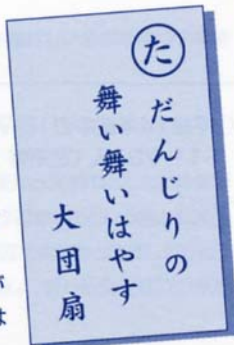 た
だんじりの
舞い舞いはやす
大団扇
が
は